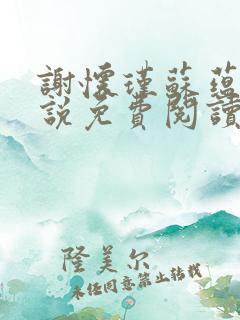 謝懷瑾蘇蘊
說免費閱讀
隆美尔
未经同意禁止转载